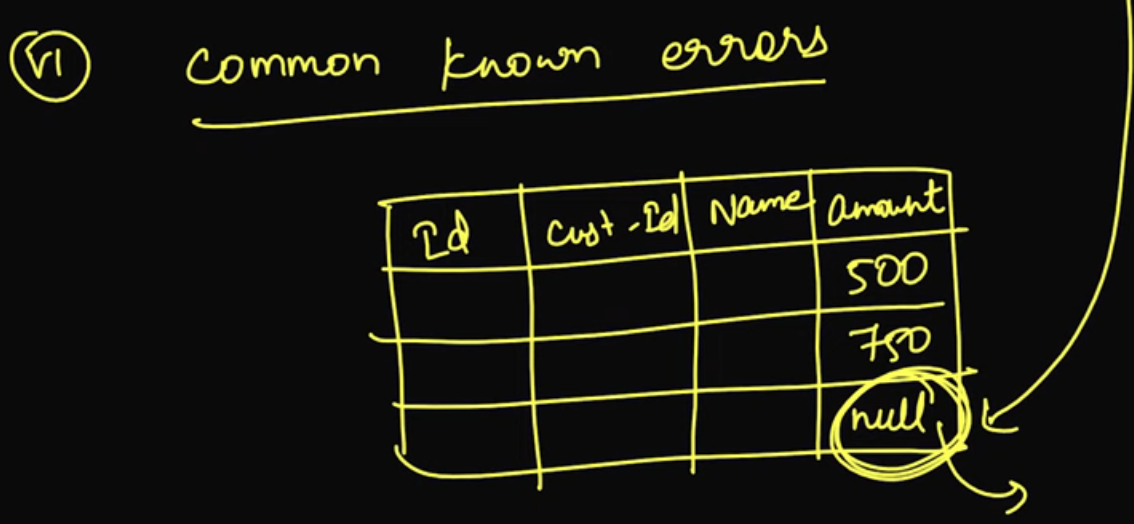 VI Common known errors
Id Cust-Id Name amount
500
750
null